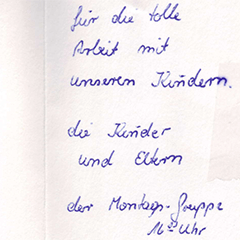 für die tolle
Arbeit mit
unseren Kindern.
die Kinder
und Eltern
der Montags-Gruppe
16⁰⁰ Uhr